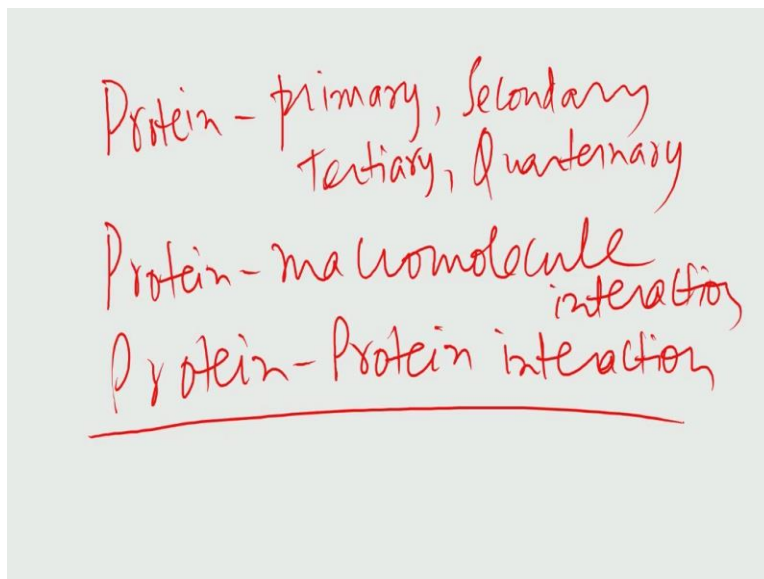 Protein - primary, Secondary
Tertiary, Quarternary
Protein - macromolecule
interaction
Protein - Protein interaction